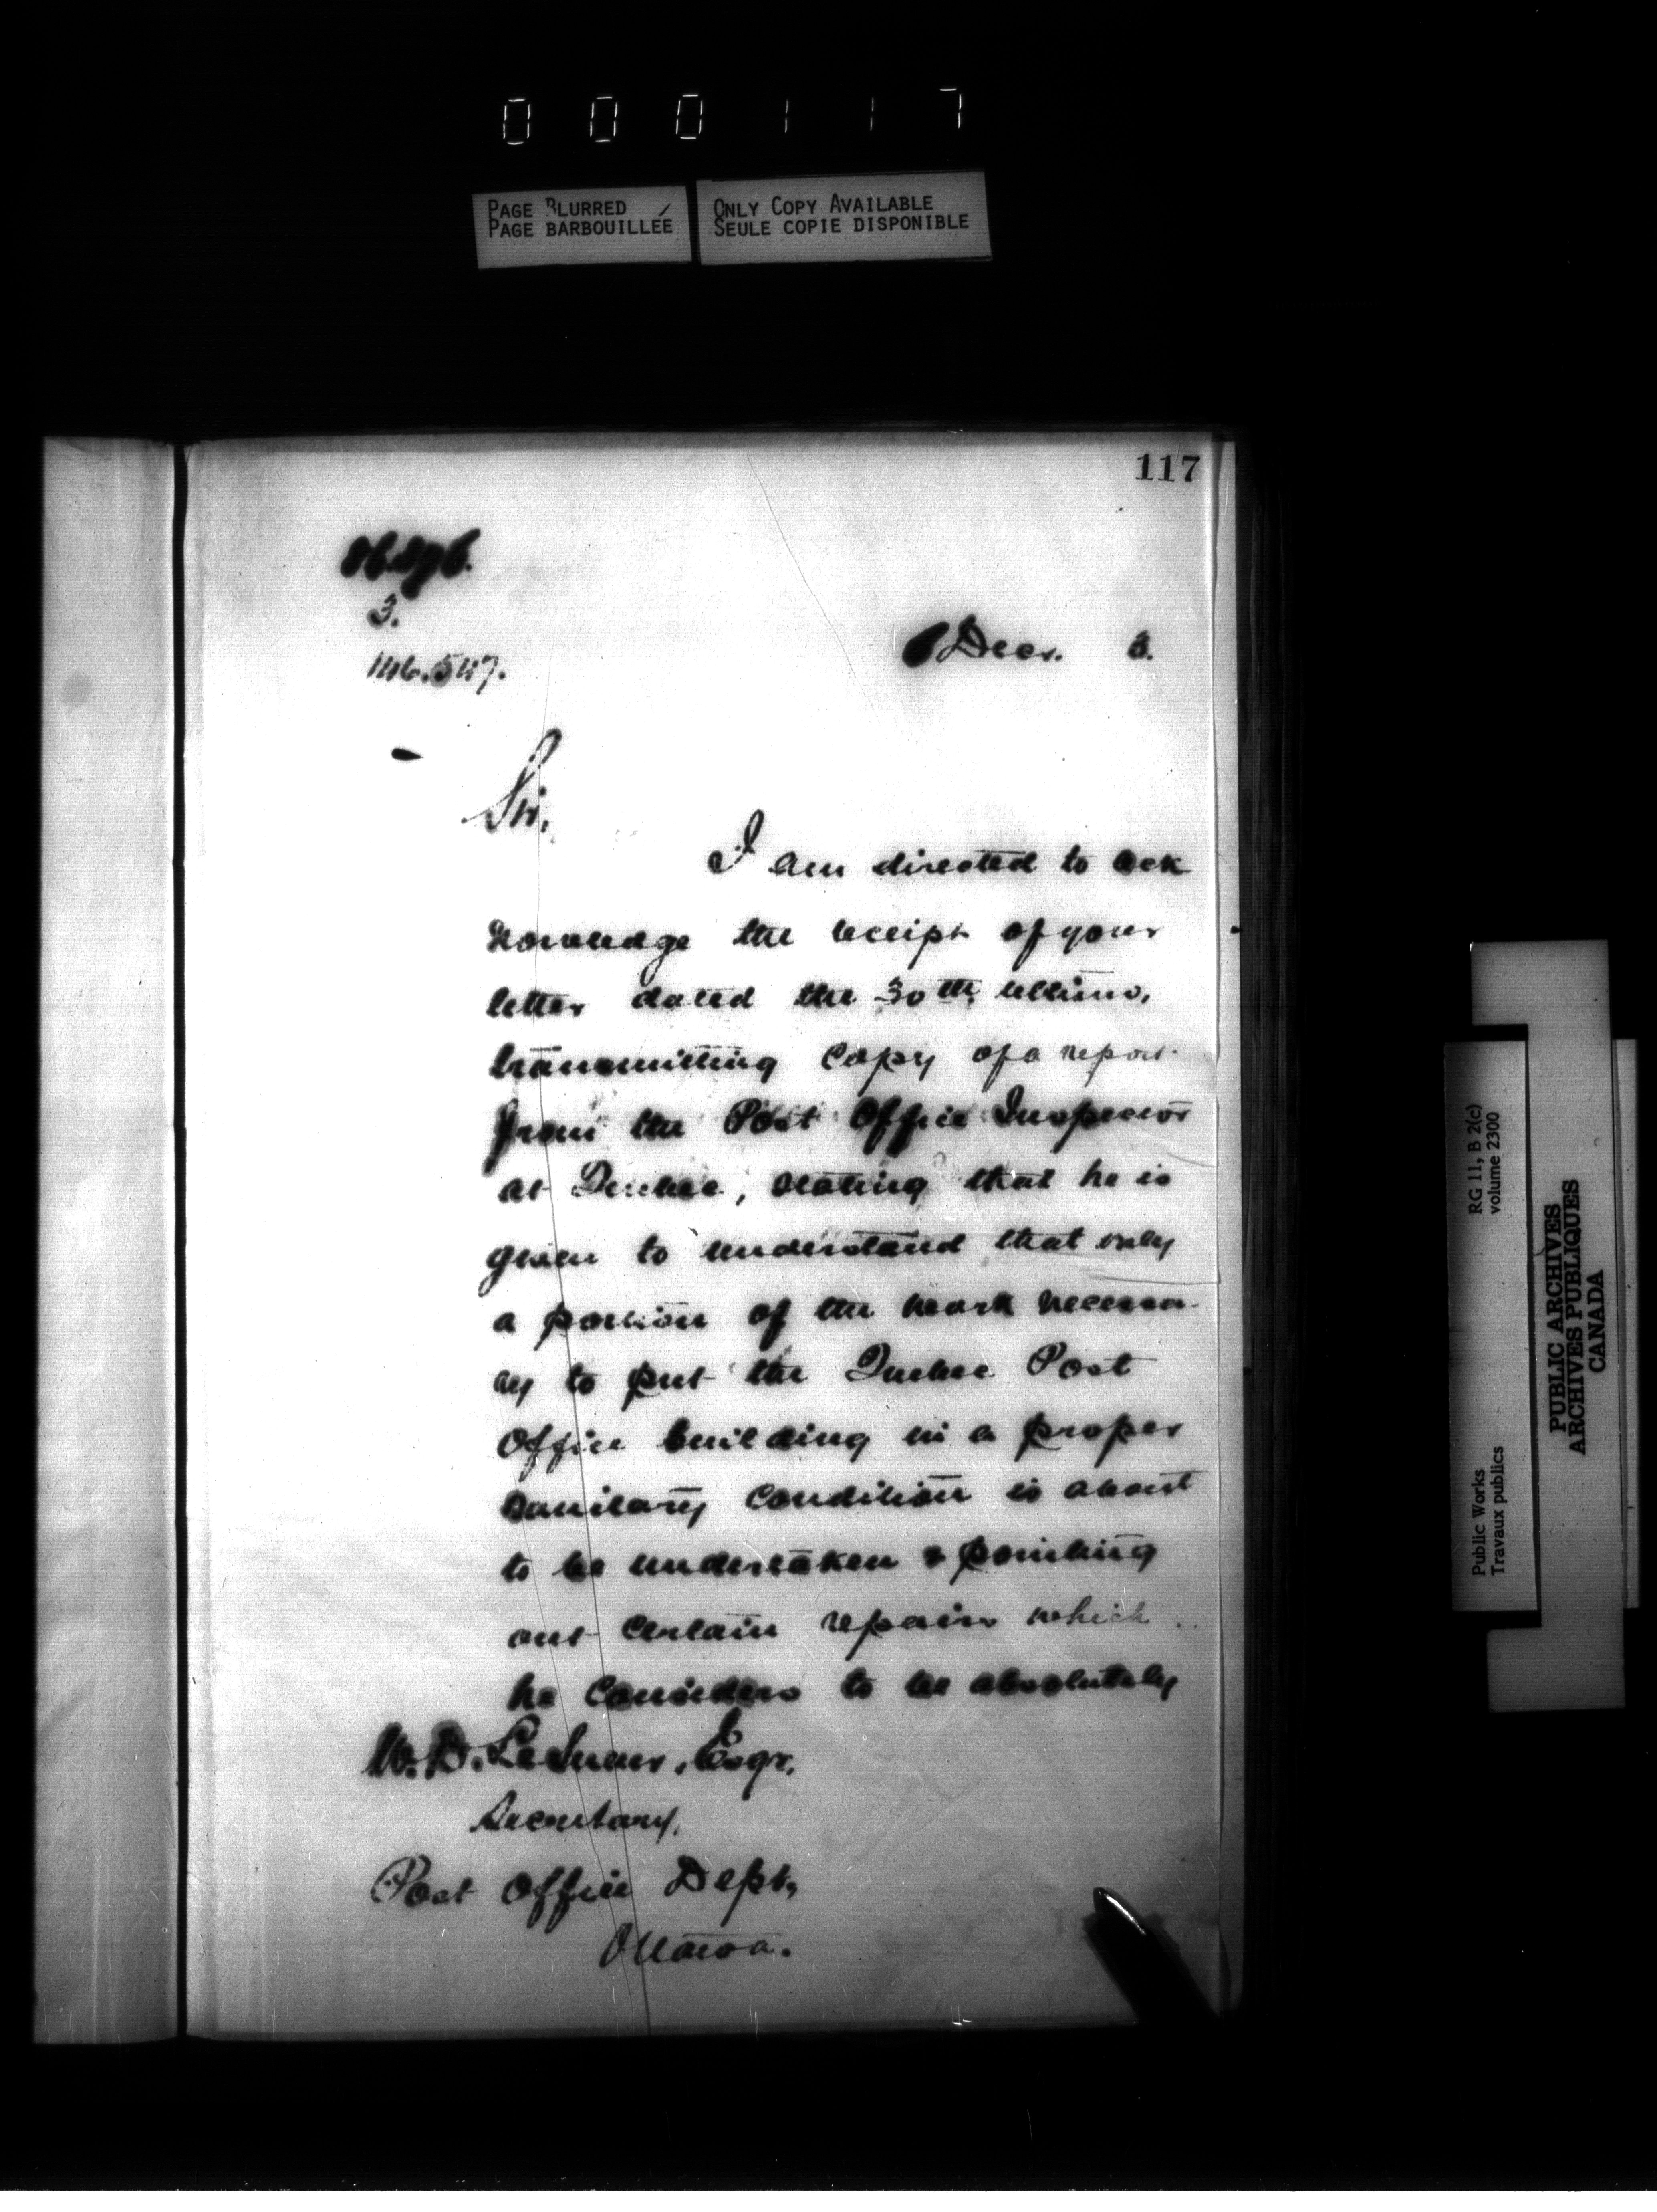 000117
PAGE BLURRED
PAGE BARBOUILLÉE
ONLY COPY AVAILABLE
SEULE COPIE DISPONIBLE
117
3.
146.547.
Decr. 3.
Sir,
I am directed to ack
nowledge the receipt of your
letter dated the 30th ultimo,
transmitting copy of a report
from the Post Office Inspector
at Quebec, stating that he is
given to understand that only
a portion of the work necessa-
ry to put the Quebec Post
Office building in a proper
sanitary condition is about
to be undertaken & pointing
out certain repairs which
he considers to be absolutely
W. D. LeSueur, Esqr.
Secretary,
Post Office Dept,
Ottawa.
RG 11, B 2(c)
volume 2300
Public Works
Travaux publics
PUBLIC ARCHIVES
ARCHIVES PUBLIQUES
CANADA